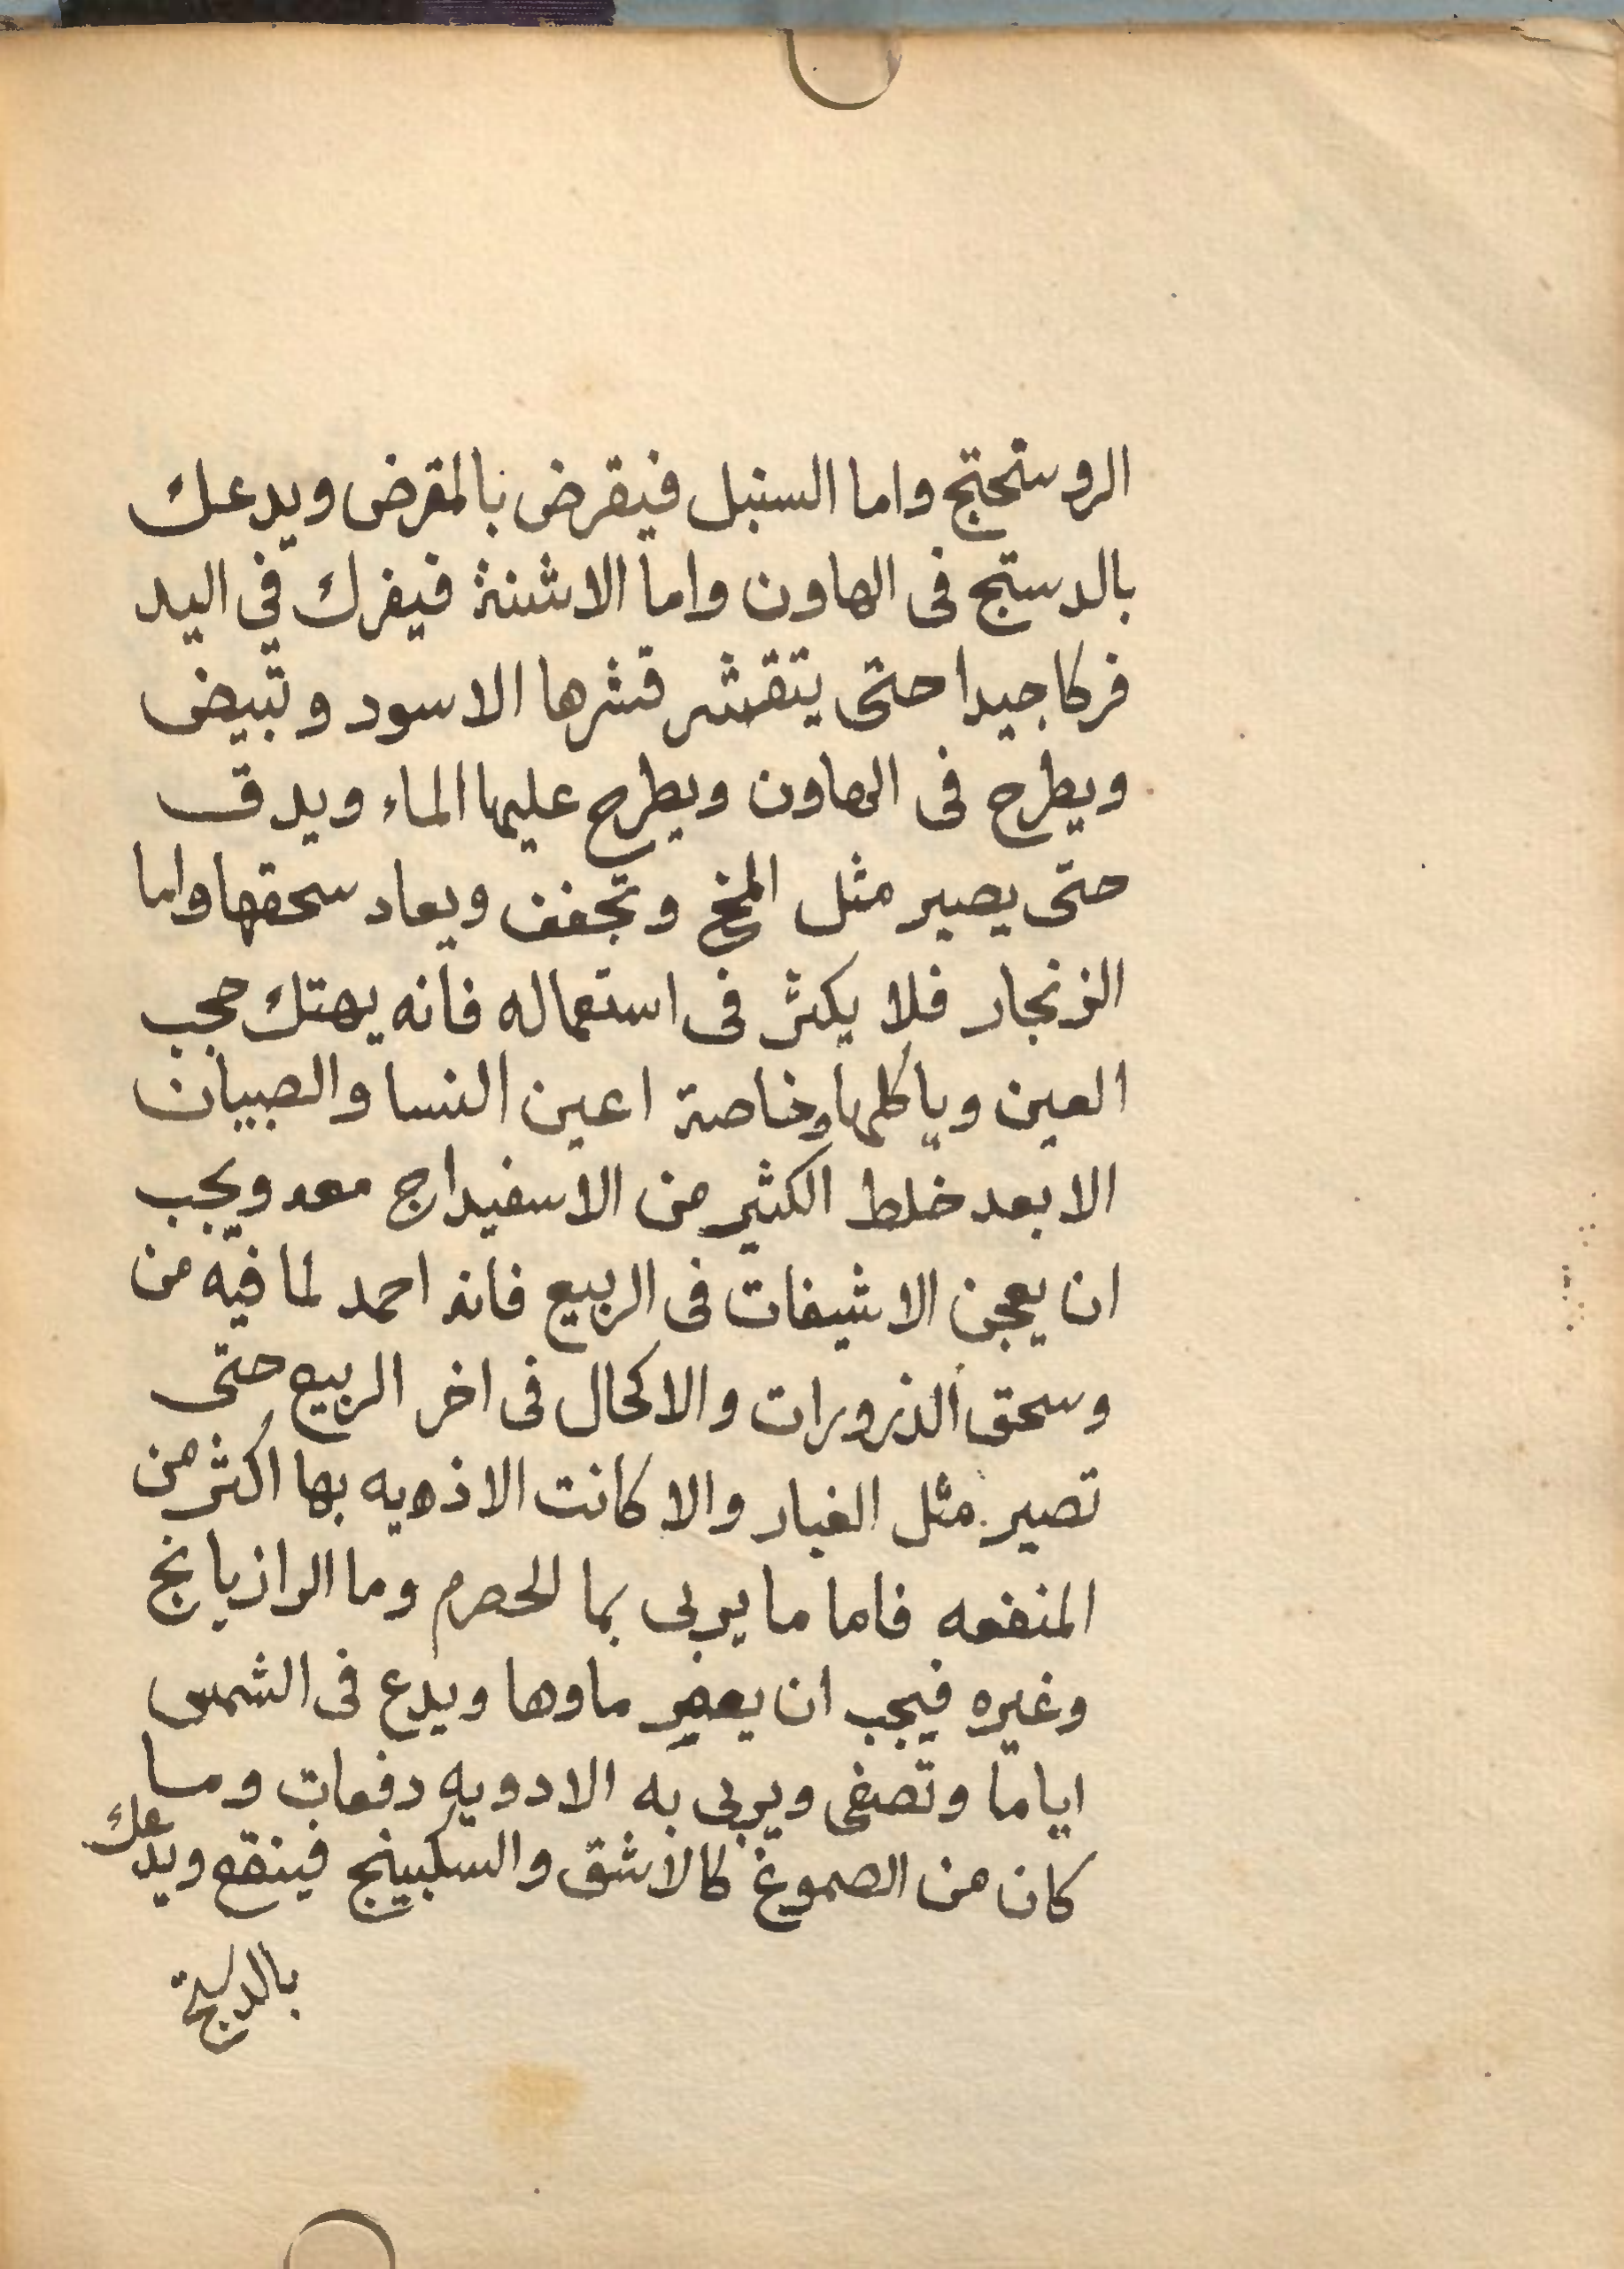 الروسختج واما السنبل فيقرض بالمقرض ويدعك
بالدستج فى الهاون واما الاشنة فيفرك في اليد
فركا جيدا حتى يتقشر قشرها الاسود وتبيض
ويطرح فى الهاون ويطرح عليها الماء ويدق
حتى يصير مثل المخ وتجفف ويعاد سحقها واما
الزنجار فلا يكثر فى استعماله فانه يهتك حجب
العين وياكلها وخاصة اعين النسا والصبيان
الا بعد خلط الكثير من الاسفيداج معه ويجب
ان يعجن الاشيفات فى الربيع فانه احمد لما فيه من
وسحق الذرورات والاكحال فى اخر الربيع حتى
تصير مثل الغبار والا كانت الاذيه بها اكثر من
المنفعه فاما ما يربى بما الحصرم وما الرازيانج
وغيره فيجب ان يعصر ماوها ويدع فى الشمس
اياما وتصفى ويربى به الادويه دفعات وما
كان من الصموغ كالاشق والسكبينج فينقع ويدعك
بالدستج